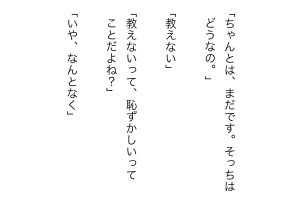 「ちゃんとは、まだです。そっちは
どうなの。」
「教えない」
「教えないって、恥ずかしいって
ことだよね？」
「いや、なんとなく」